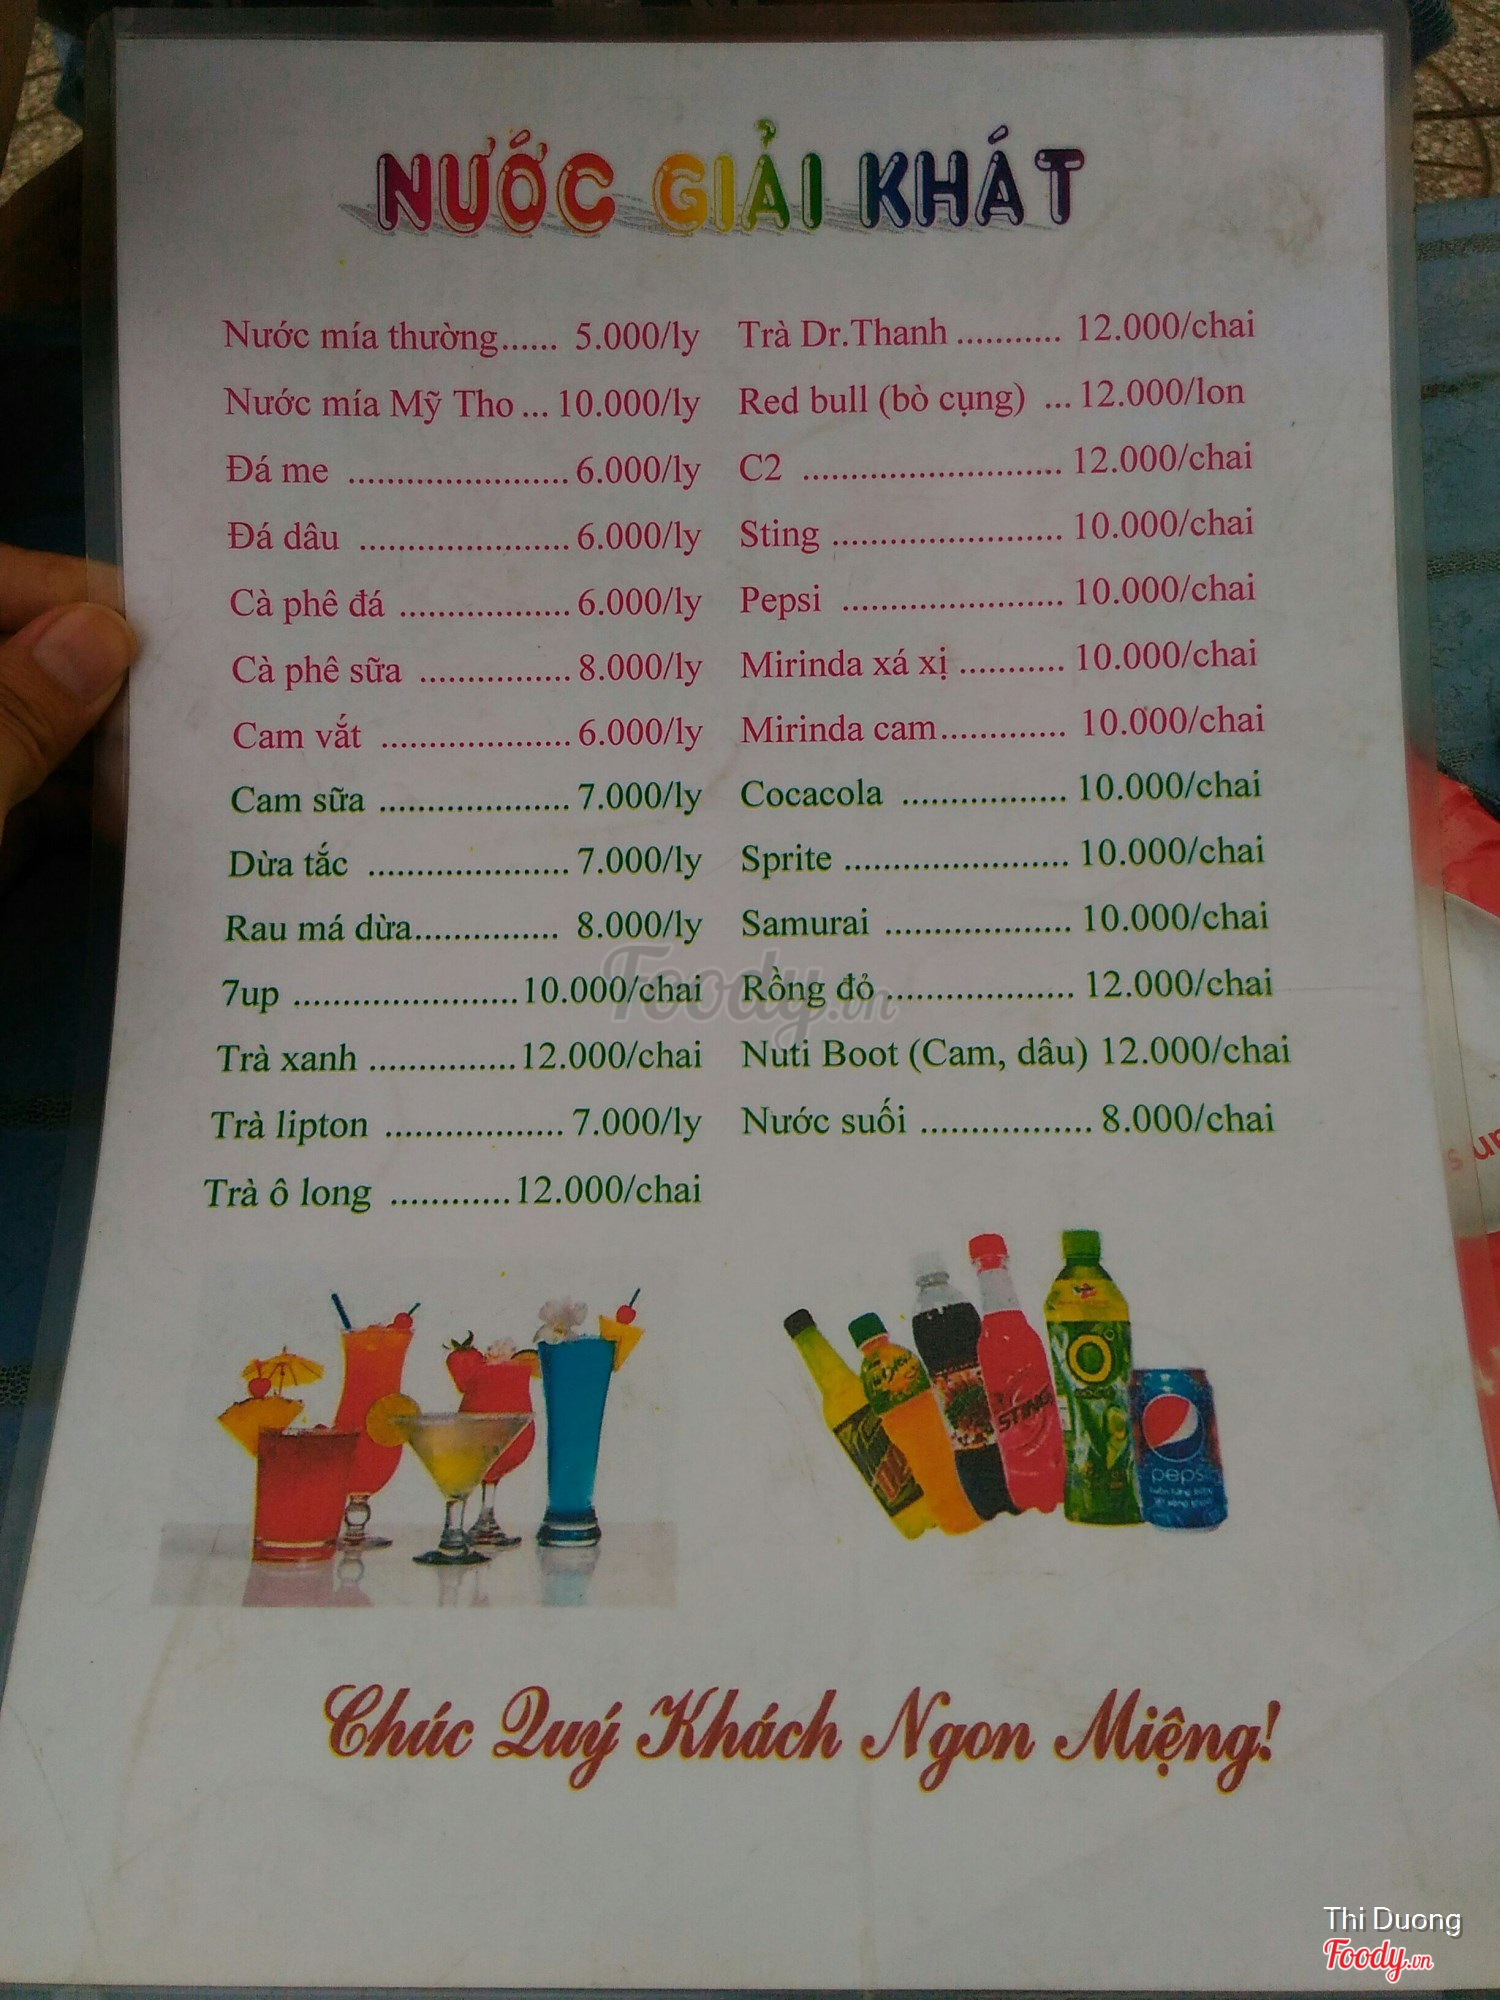 NƯỚC GIẢI KHÁT
Nước mía thường...... 5.000/ly
Nước mía Mỹ Tho ... 10.000/ly
Đá me ....................... 6.000/ly
Đá dâu ...................... 6.000/ly
Cà phê đá .................. 6.000/ly
Cà phê sữa ................ 8.000/ly
Cam vắt .................... 6.000/ly
Cam sữa .................... 7.000/ly
Dừa tắc ..................... 7.000/ly
Rau má dừa............... 8.000/ly
7up ....................... 10.000/chai
Trà xanh ............... 12.000/chai
Trà lipton .................. 7.000/ly
Trà ô long ............ 12.000/chai
Trà Dr.Thanh ........... 12.000/chai
Red bull (bò cụng) ... 12.000/lon
C2 ........................... 12.000/chai
Sting ........................ 10.000/chai
Pepsi ....................... 10.000/chai
Mirinda xá xị ........... 10.000/chai
Mirinda cam............. 10.000/chai
Cocacola ................. 10.000/chai
Sprite ....................... 10.000/chai
Samurai ................... 10.000/chai
Rồng đỏ ................... 12.000/chai
Nuti Boot (Cam, dâu) 12.000/chai
Nước suối ................. 8.000/chai
Foody.vn
STING
pepsi
Chúc Quý Khách Ngon Miệng!
Thi Duong
Foody.vn